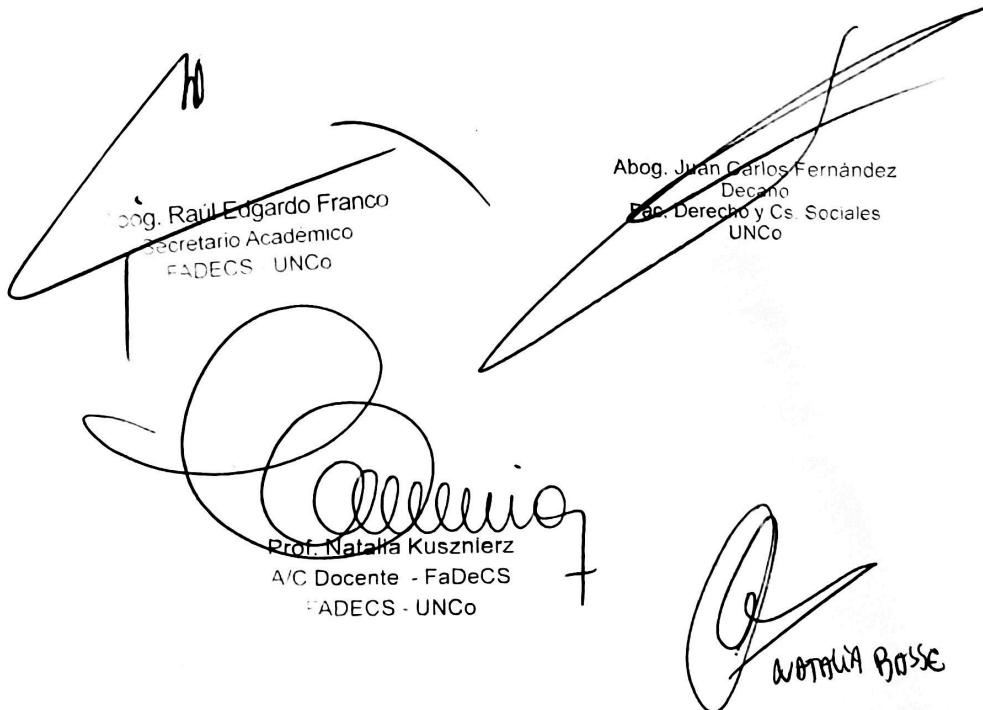 Abog. Raúl Edgardo Franco
Secretario Académico
FADECS UNCo
Abog. Juan Carlos Fernández
Decano
Fac. Derecho y Cs. Sociales
UNCo
Prof. Natalia Kusznierz
A/C Docente - FaDeCS
FADECS - UNCo
NATALIA BOSSE